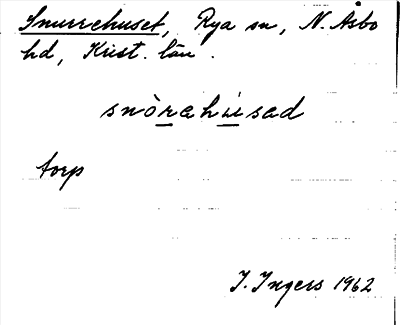 Snurrehuset, Rya sn, N. Åsbo
hd, Krist. län.
snòrahùsad
torp
I. Ingers 1962